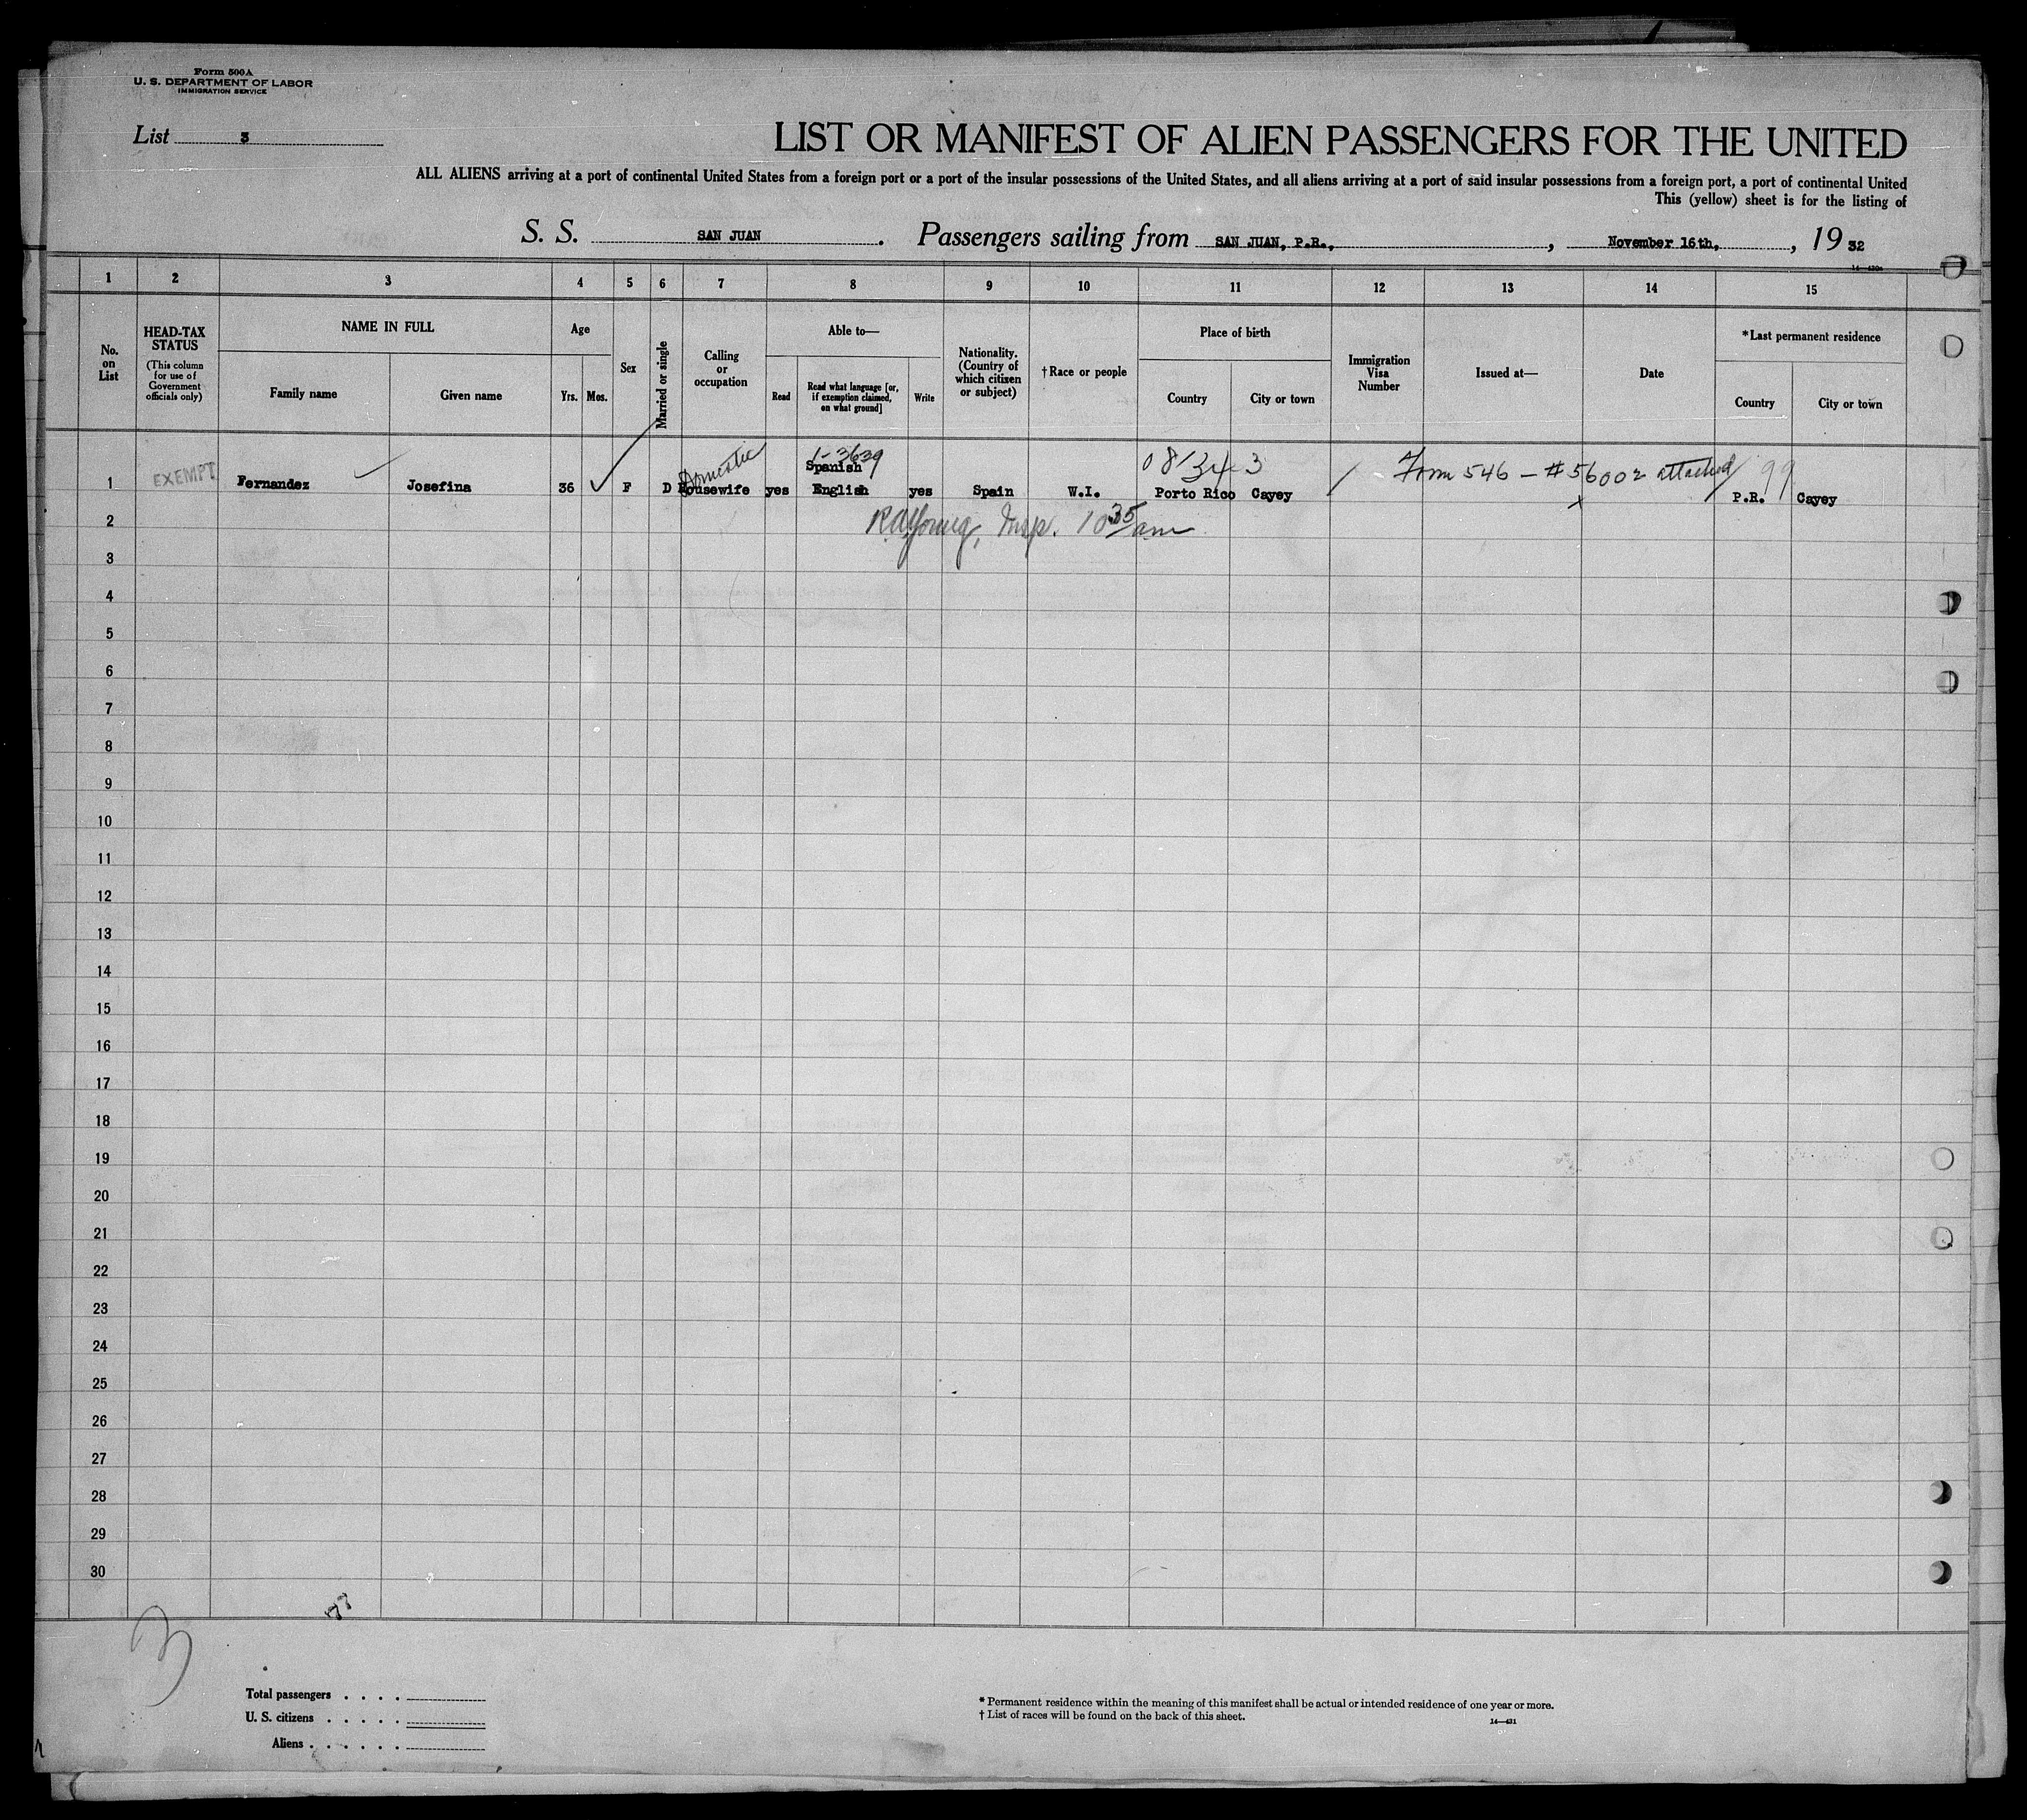 Form 500A
U. S. DEPARTMENT OF LABOR
IMMIGRATION SERVICE
List 3
LIST OR MANIFEST OF ALIEN PASSENGERS FOR THE UNITED
ALL ALIENS arriving at a port of continental United States from a foreign port or a port of the insular possessions of the United States, and all aliens arriving at a port of said insular possessions from a foreign port, a port of continental United
This (yellow) sheet is for the listing of
S. S. SAN JUAN. Passengers sailing from SAN JUAN, P.R., , November 16th, , 19 32
1 2 3 4 5 6 7 8 9 10 11 12 13 14 15
No. on List
HEAD-TAX STATUS
(This column for use of Government officials only)
NAME IN FULL
Family name
Given name
Age
Yrs.
Mos.
Sex
Married or single
Calling or occupation
Able to—
Read
Read what language [or, if exemption claimed, on what ground]
Write
Nationality. (Country of which citizen or subject)
†Race or people
Place of birth
Country
City or town
Immigration Visa Number
Issued at—
Date
*Last permanent residence
Country
City or town
Domestic 1-3639 Spanish 3 Form 546 - #56002 attached 99
1 EXEMPT Fernandez Josefina 36 F D Housewife yes English yes Spain W.I. Porto Rico Cayey P.R. Cayey
2 Young, Insp. 10 35 am
3
4
5
6
7
8
9
10
11
12
13
14
15
16
17
18
19
20
21
22
23
24
25
26
27
28
29
30
3
Total passengers . . . .
U. S. citizens . . . . .
Aliens . . . . . .
* Permanent residence within the meaning of this manifest shall be actual or intended residence of one year or more.
† List of races will be found on the back of this sheet.
14—431